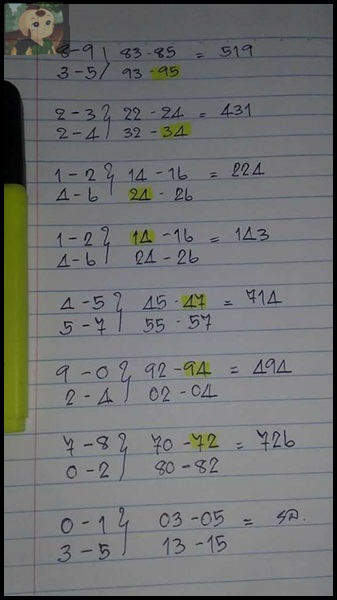 8-9 } 83-85 = 519
3-5 } 93-95
2-3 } 22-24 = 431
2-4 } 32-34
1-2 } 14-16 = 224
4-6 } 24-26
1-2 } 14-16 = 143
4-6 } 24-26
4-5 } 45-47 = 714
5-7 } 55-57
9-0 } 92-94 = 494
2-4 } 02-04
7-8 } 70-72 = 726
0-2 } 80-82
0-1 } 03-05 = รอ.
3-5 } 13-15